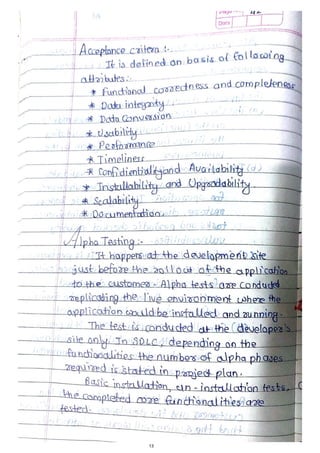 Acceptance critera :-
It is defined on basis of following
attributes:-
* Functional correctness and completeness
* Data integrity
* Data Conversion
* Usability
* Performance
* Timeliness
* Confidientiality and Availability
* Installability and Upgradability
* Scalability
* Documentation
Alpha Testing :-
It happens at the development site
just before the roll out of the application
to the customer. Alpha tests are conducted
replicating the live environment where the
application would be installed and running.
The test is conducted at the developer's
site only. In SDLC, depending on the
functionalities the numbers of alpha phases
required is stated in project plan.
Basic installation, un-installation tests.
the completed core functionalities are
tested.
12